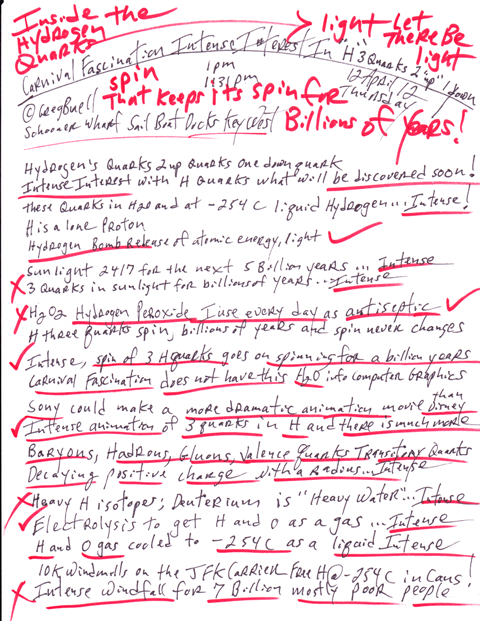 Inside the
Hydrogen
Quarks
light Let
There Be
light
Carnival Fascination Intense Interest In "H" 3 Quarks 2 "up" 1 down
1pm
1:31pm
12 April 12
Thursday
spin
That keeps its spin for
Billions of years!
© Greg Buell
Schooner Wharf Sail Boat Docks Key West
Hydrogen's Quarks 2 up Quarks one down quark
Intense Interest with H Quarks what will be discovered soon!
these Quarks in H2O and at -254 C liquid Hydrogen... Intense!
H is a lone Proton
Hydrogen Bomb Release of atomic energy, light
Sun light 24/7 for the next 5 Billion years... Intense
3 Quarks in sunlight for billions of years... Intense
H2O2 Hydrogen Peroxide I use every day as antiseptic
H three quarks spin, billions of years and spin never changes
Intense, spin of 3 H quarks goes on spinning for a billion years
Carnival Fascination does not have this H2O into Computer Graphics
Sony could make a more dramatic animation movie than Disney
Intense animation of 3 quarks in H and there is much more
Baryons, Hadrons, Gluons, Valence Quarks Transitory Quarks
Decaying positive charge with a radius... Intense
Heavy H isotopes; Deuterium is "Heavy Water"... Intense
Electrolysis to get H and O as a gas... Intense
H and O gas cooled to -254 C as a liquid Intense
10K Windmills on the JFK Carrier Free H@-254 C in Cans!
Intense Windfall for 7 Billion mostly poor people!